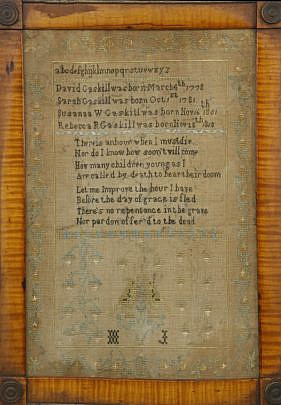 abcdefghijklmnopqrstuvwxyz
David Gaskill was born March 4th 1778
Sarah Gaskill was born Oct 1st 1781
Susanna W Gaskill was born Nov 16th 1801
Rebecca R Gaskill was born Nov 15th
There is an hour when I must die
Nor do I know how soon't will come
How many children young as I
Are called by death to hear their doom
Let me Improve the hour I have
Before the day of grace is fled
There's no repentance in the grave
Nor pardon offer'd to the dead